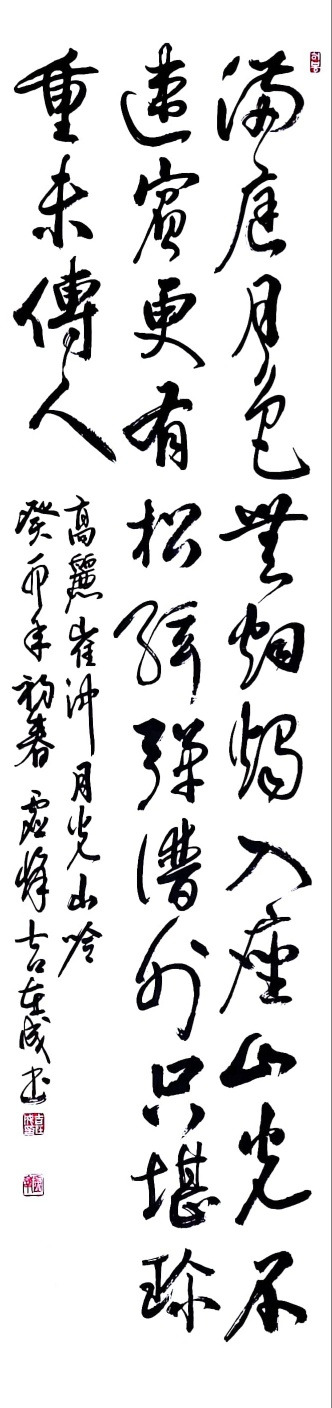 滿庭月色無烟燭入座山光不
速賓更有松絃彈譜外只堪珍
重未傳人
高麗崔沖月光山吟
癸卯年初春虛峰吉在成書